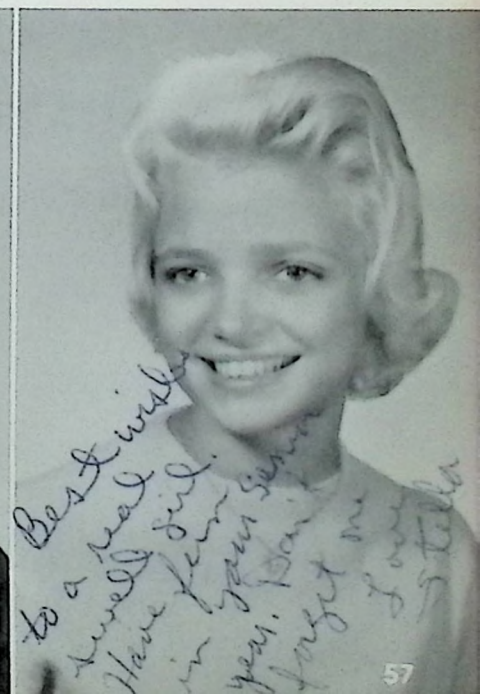 Best wishes
to a real
swell girl.
Have fun
in your senior
year. Don't
forget me
Love
Stella
57